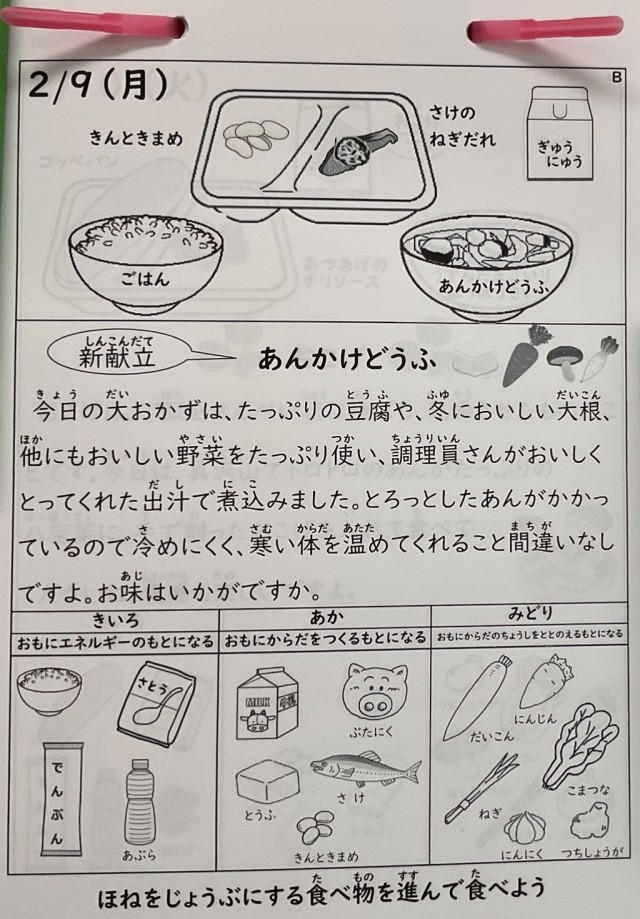 2/9(月)
B
きんときまめ
さけの
ねぎだれ
ぎゅう
にゅう
ごはん
あんかけどうふ
しんこんだて
新献立
あんかけどうふ
きょう だい とうふ ふゆ だいこん
今日の大おかずは、たっぷりの豆腐や、冬においしい大根、
ほか やさい つか ちょうりいん
他にもおいしい野菜をたっぷり使い、調理員さんがおいしく
だし にこ
とってくれた出汁で煮込みました。とろっとしたあんがかかっ
さ さむ からだ あたた まちが
ているので冷めにくく、寒い体を温めてくれること間違いなし
あじ
ですよ。お味はいかがですか。
きいろ あか みどり
おもにエネルギーのもとになる おもにからだをつくるもとになる おもにからだのちょうしをととのえるもとになる
さとう
でんぷん
あぶら
MILK
牛乳
ぶたにく
さけ
とうふ
きんときまめ
だいこん
にんじん
こまつな
ねぎ
にんにく
つちしょうが
た もの すす た
ほねをじょうぶにする食べ物を進んで食べよう